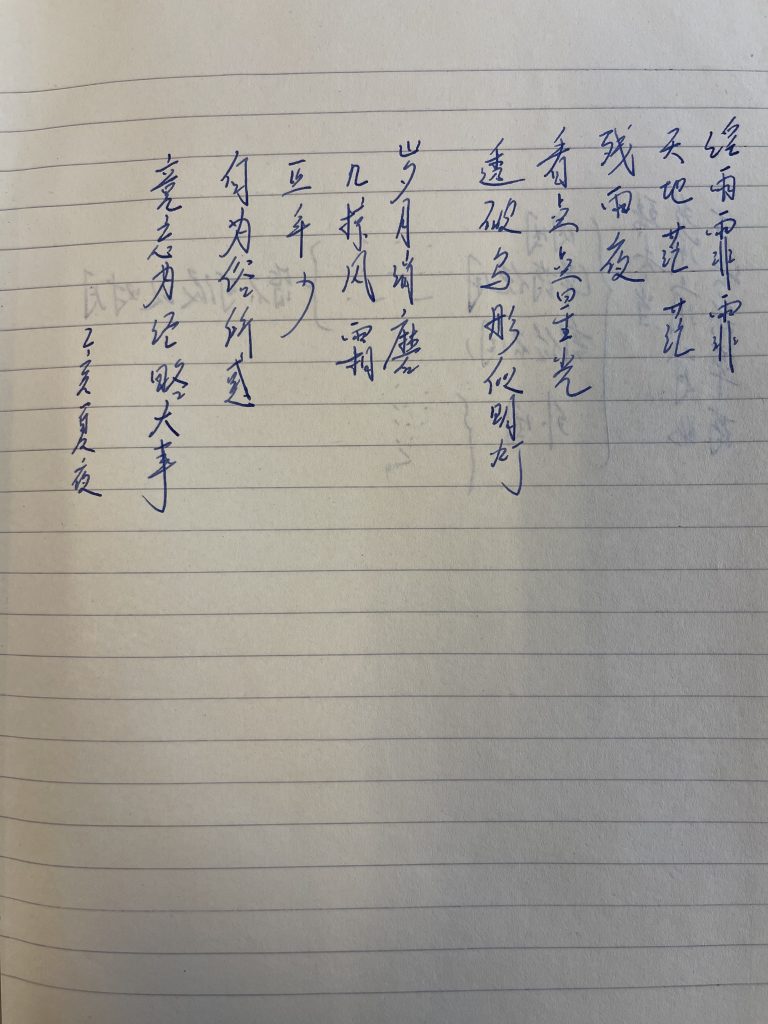 雨霏霏
天地茫茫
残雨夜
看点点星光
透破乌彤似明灯
岁月消磨
几掠风霜
正年少
勿为俗所惑
竟志为经略大事
乙亥夏夜